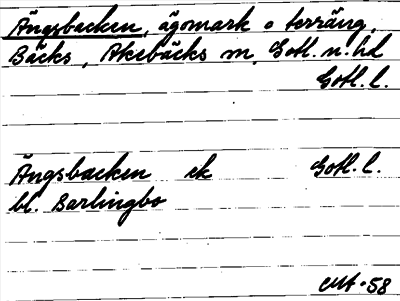 Ängsbacken, ägomark o terräng,
Bäcks, Akebäcks sn, Gotl. n. hd
Gotl. l.
Ängsbacken ek Gotl. l.
bl. Barlingbo
58